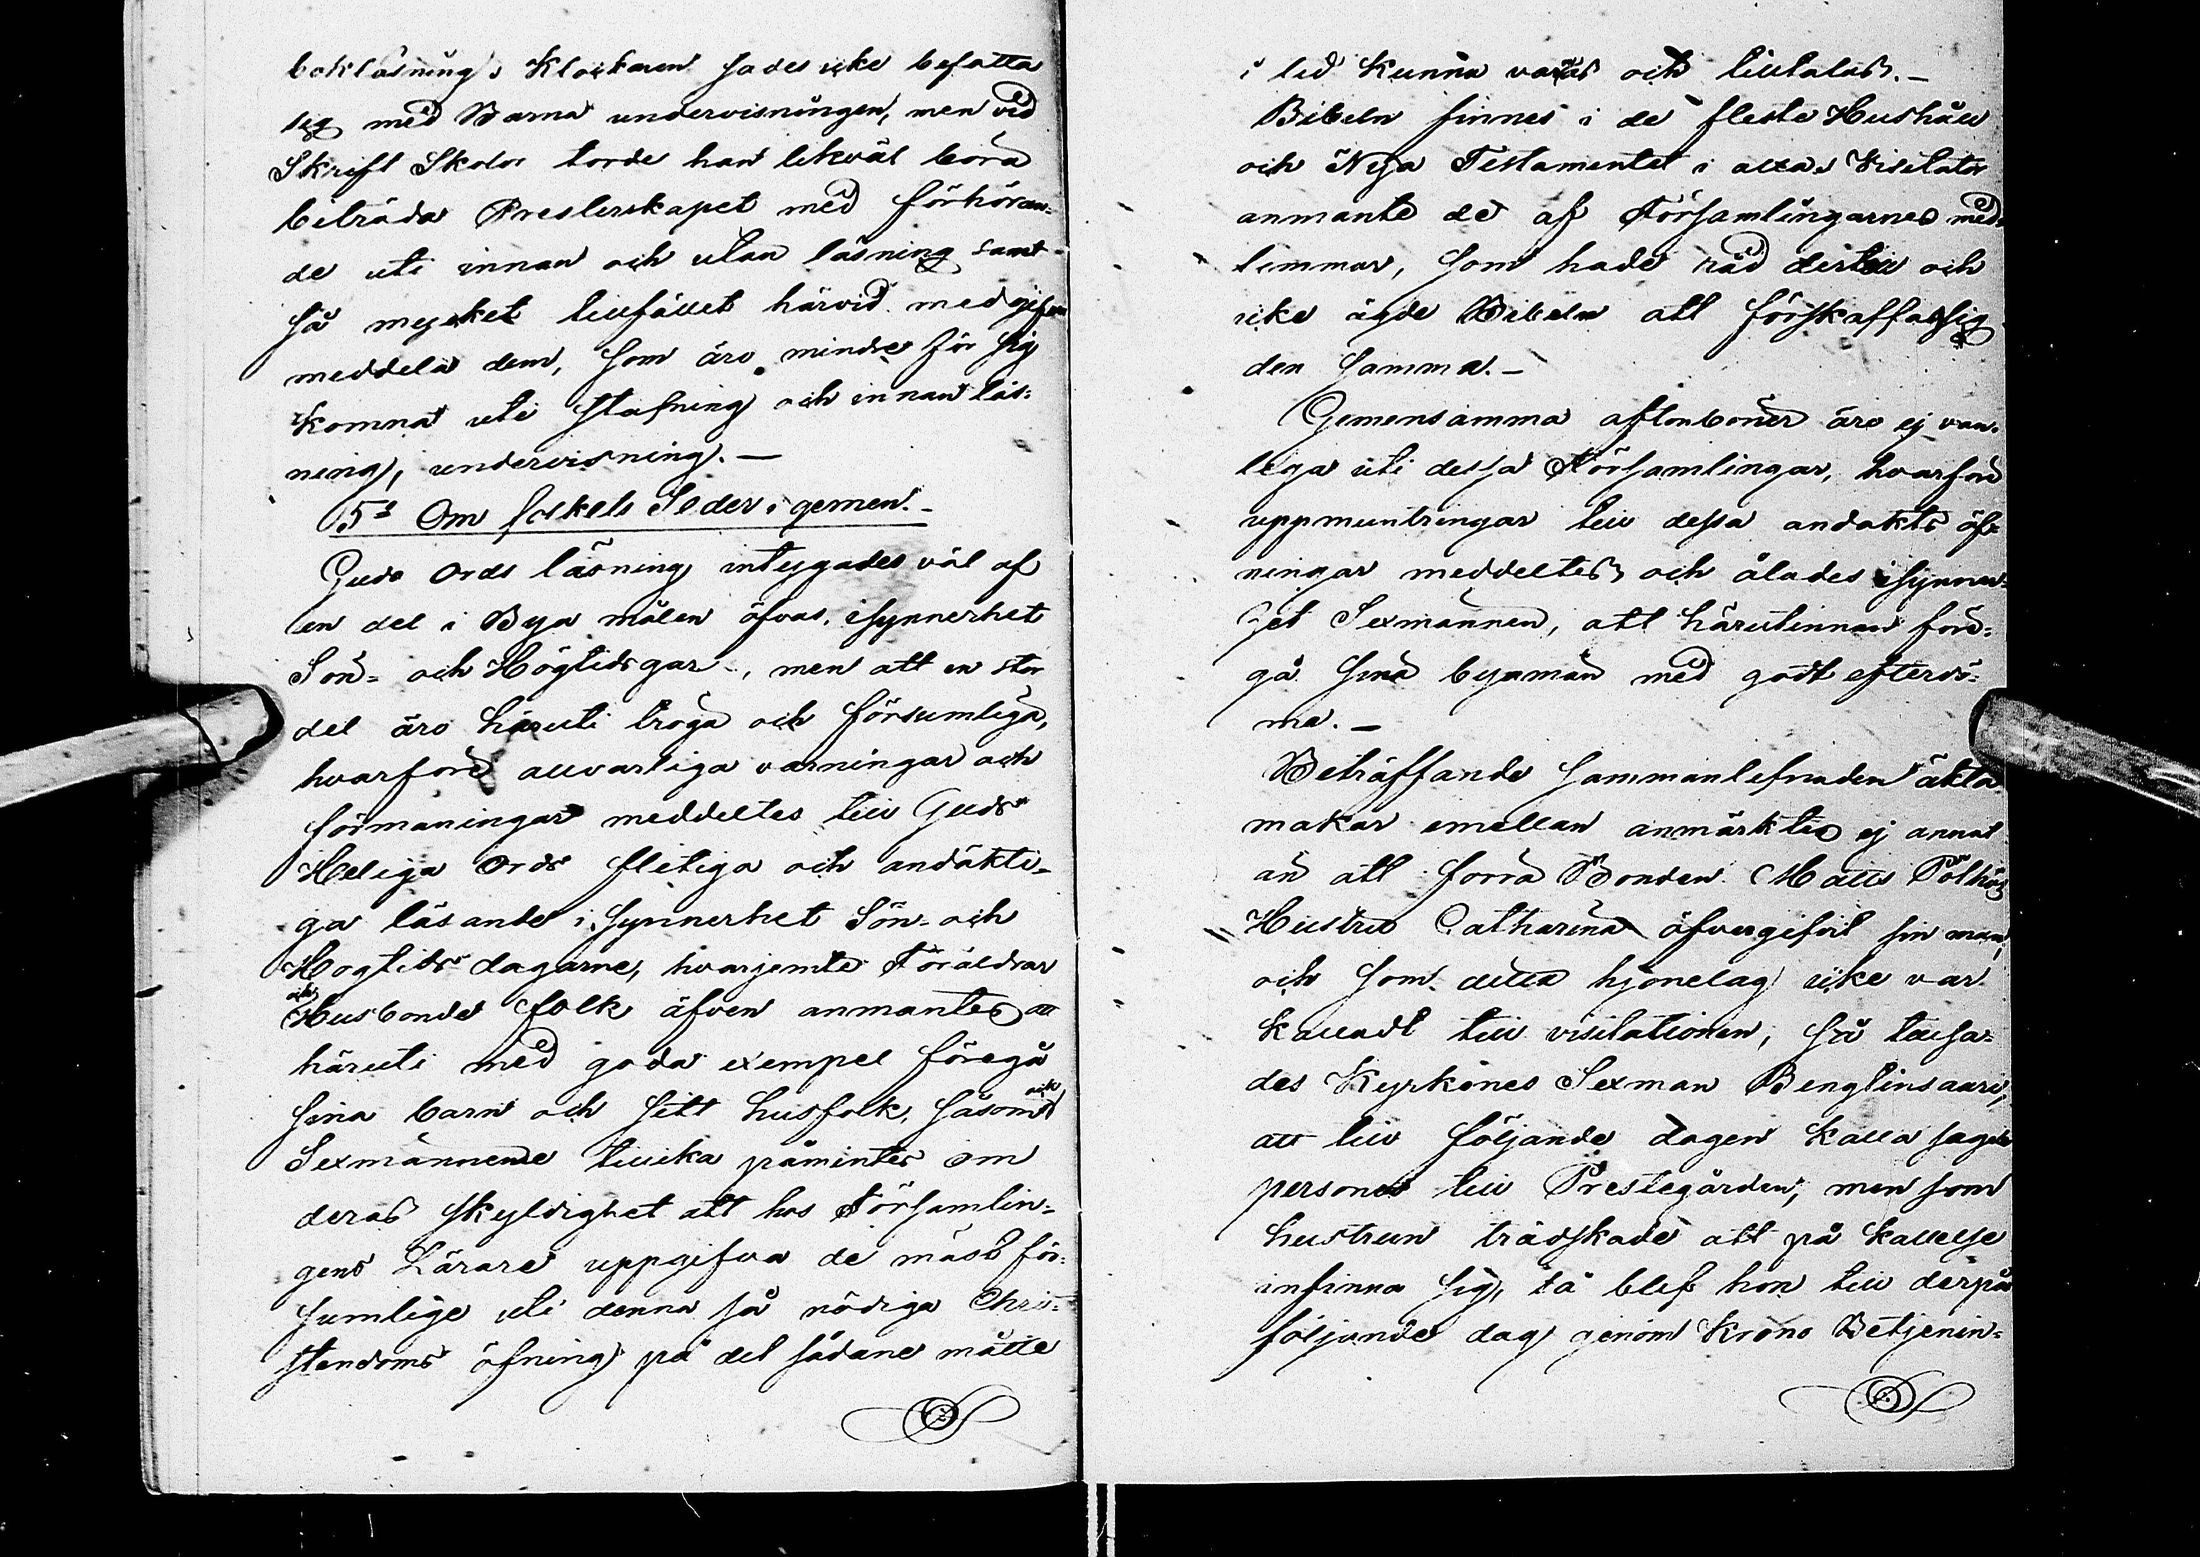 bokläsning. Klockaren sades icke befatta
sig med Barna undervisningen, men vid
Skrift Skolor torde han likväl böra
biträda Presterskapet med förhöran-
de uti innan och utan läsning samt
så mycket tillfället härvid medgifver
meddela dem, som äro mindre för sig
komna uti stafning och innan läs-
ning, undervisning. —
5º Om folkets Seder i gemen. -
Guds Ords läsning intygades väl af
en del i Bya målen öfvas, isynnerhet
Sön- och Högtidsgar, men att en stor
del äro häruti tröga och försumliga,
hvarföre allvarliga varningar och
förmaningar meddeltes till Guds
Heliga Ords flitiga och andäkti-
ga läsande i synnerhet Sön- och
Högtids dagarne, hvarjemte Föräldrar
och Husbonde folk äfven anmantes att
häruti med goda exempel föregå
sina barn och sitt husfolk, såsom ock
Sexmännerne tillika påmintes om
deras skyldighet att hos Församlin-
gens Lärare uppgifva de mäst för-
sumlige uti denna så nödiga Chri-
stendoms öfning på det sådane måtte
i tid kunna varnas och tilltalas. —
Bibeln finnes i de fleste Hushåll
och Nya Testamentet i alla. Visitator
anmante de af Församlingarnes med-
lemmar, som hade råd dertill och
icke ägde Bibeln att förskaffa sig
den samma. —
Gemensamma aftonböner äro ej van-
liga uti dessa Församlingar, hvarföre
uppmuntringar till dessa andakts öf-
ningar meddeltes och ålades isynner-
het Sexmännen, att härutinnan före-
gå sina byamän med godt efterdö-
me. —
Beträffande sammanlefnaden äkta
makar emellan anmärktes ej annat
än att förra Bonden Matts Pölhös
Hustru Catharina öfvergifvit sin man,
och som detta hjonelag icke var
kalladt till visitationen, så tillsa-
des Kyrkönes Sexman Bengtinsaari,
att till följande dagen kalla sagde
personer till Prestegården, men som
hustrun trädskade att på kallelse
infinna sig, så blef hon till derpå
följande dag genom Krono Betjenin-